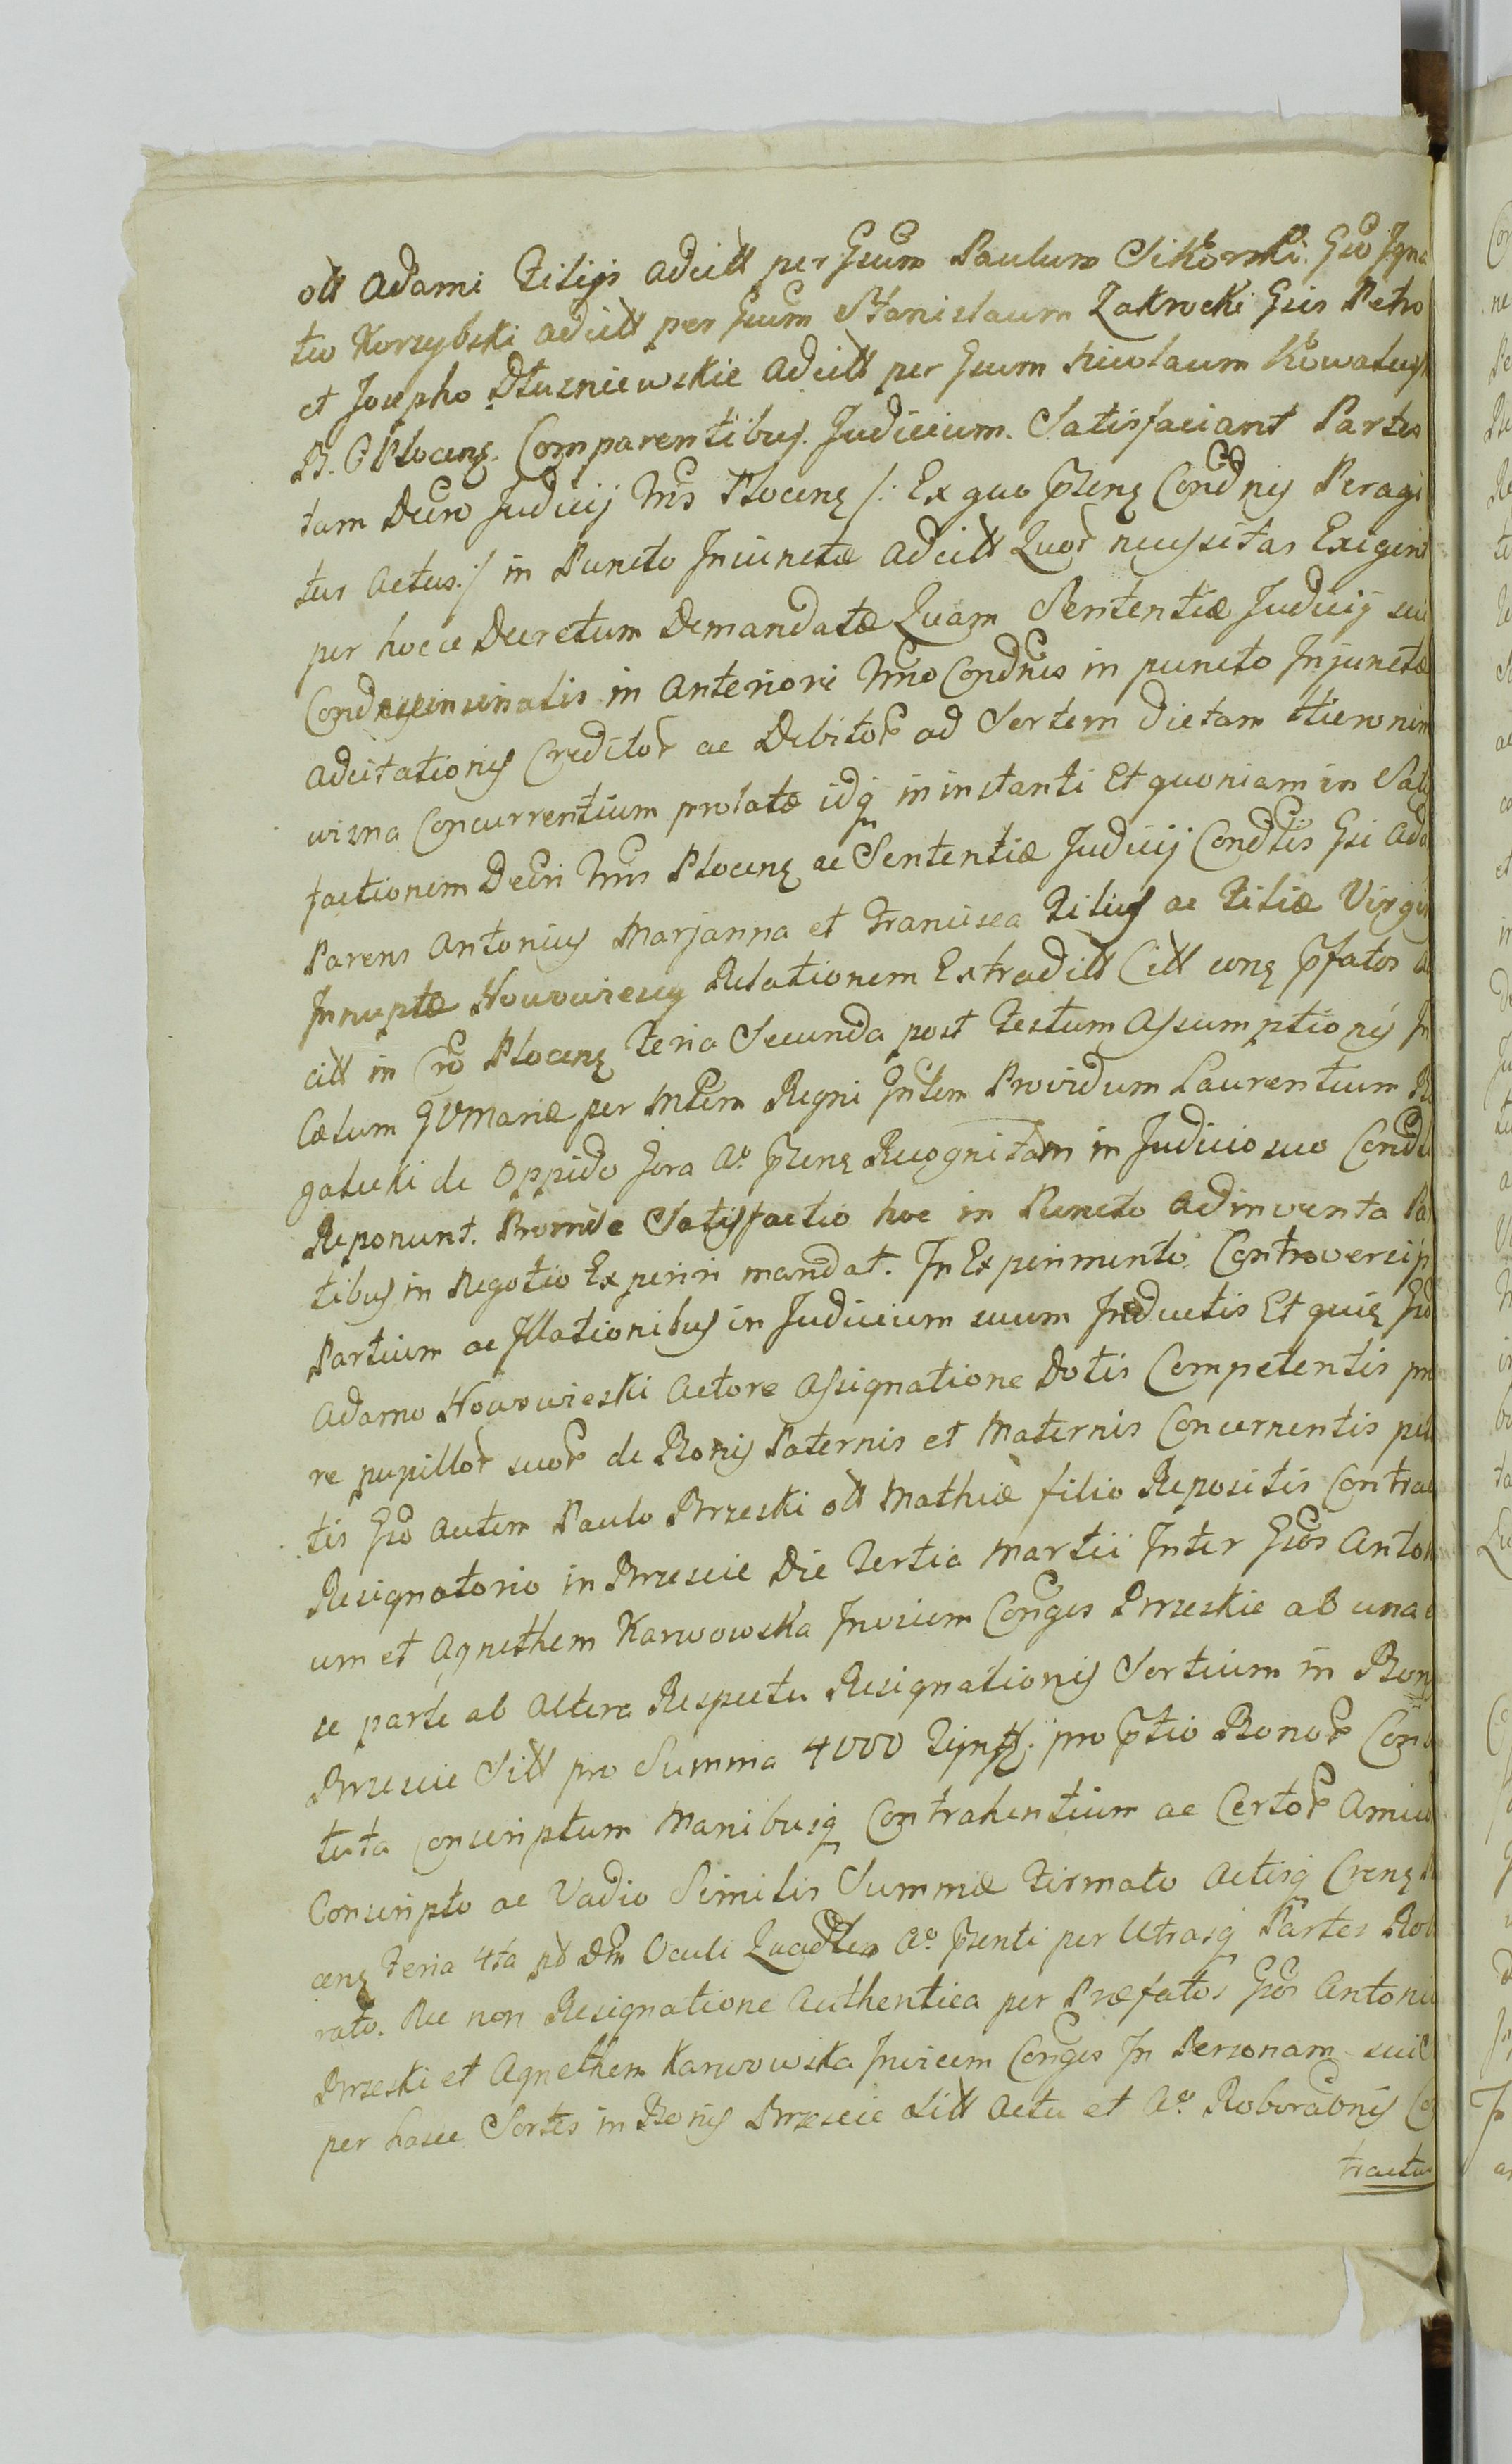 olł Adami Filijs adcitł per Gsum Paulum Sikorski. Gso Igna
tio Korzybski adcitł per Gsum Stanislaum Zakrocki Gsis Petro
et Josepho Dłuzniewskie adcitł per Gsum Nicolaum Kowalusk
B. C. Plocens. Comparentibus. Judicium. Satisfaciant Partes
tam Dcto Judicij Tris Plocens /: Ex quo Pzens Condnis Peragi
tur Actus :/ in Puncto Iniunctæ adcitł Quor necessitas Exigent
per hocce Decretum Demandatæ Quam Sententiæ Judicij sui
Condnis in anteriori Tmno Condnis in puncto Injunctæ
adcitationis Creditor ac Debitor ad Sortem dictam Hieronim
wizna Concurrentium prolatæ idq in instanti Et quoniam in Satis
factionem Decri Tris Plocens ac Sententiæ Judicij Condlis Gsi Ada
Parens Antonius Marjanna et Francisca Filius ac Filiæ Virgin
Innuptæ Nowowiescy Relationem Extraditł Citł cons pfatos ad
citł in Cro Plocens Feria Secunda post Festum Assumptionis In
Cælum GVMariæ per Mtem Regni Gntem Providum Laurentium Ro
galuki de Oppido Gora Ao. Pzens Recognitam in Judicio suo Condli
Reponunt. Promde Satisfactio hoc in Puncto adinventa Par
tibus in Negotio Experiri mandat. In Experimento Controversijs
Partium ac Illationibus in Judicium suum Inductis Et quis Gso
Adamo Nowowieski Actore Assignatione Dotis Competentis pro
re pupillor suor de Bonis Paternis et Maternis Concernentis peti
tis Gso autem Paulo Brzeski olł Mathiæ filio Repositis Contrac
Resignatorio in Brzescie Die Tertia Martii Inter Gsos Anton
um et Agnethem Karwowska Invicem Conges Brzeskie ab una
se parte ab altera Respectu Resignationis Sortium in Bonis
Brzescie Sitł pro Summa 4000 Flnpł. pro ptio Bonor Con
tuta conscriptum Manibusq Contrahentium ac Certor Amico
Conscripto ac Vadio Similis Summæ Firmato Actisq Crens
cens Feria 4ta pd Dm Oculi Quadles Ao. Pzenti per Utrasq Partes Rob
rato. Nec non Resignatione Authentica per Præfatos Gsos Antoni
Brzeski et Agnethem Karwowska Invicem Conges In Personam sui
per hasce Sortes in Bonis Brzescie Sitł Actu et Ao. Roborabnis Co
tractus